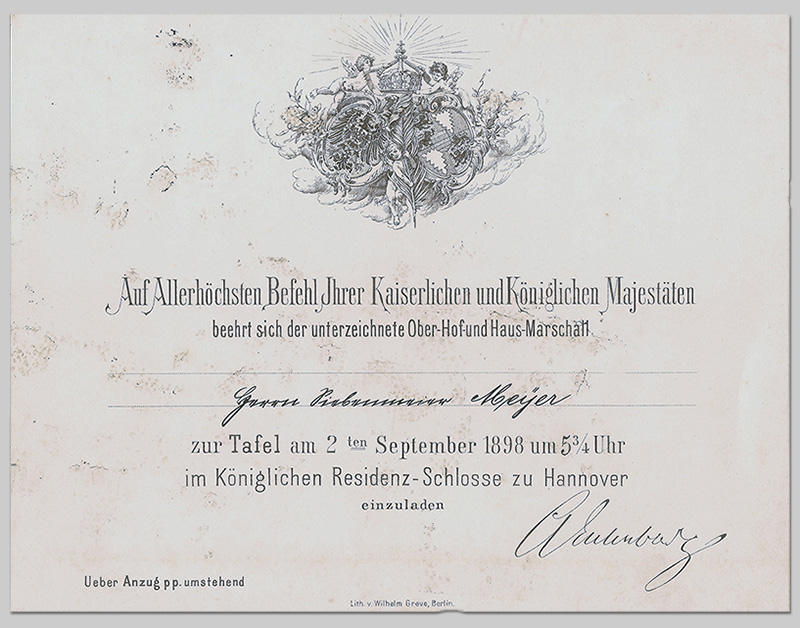 Auf Allerhöchsten Befehl Jhrer Kaiserlichen und Königlichen Majestäten
beehrt sich der unterzeichnete Ober-Hof-und Haus-Marschall
Herrn Siebenmeier Meyer
zur Tafel am 2 ten September 1898 um 5¾ Uhr
im Königlichen Residenz-Schlosse zu Hannover
einzuladen
Ueber Anzug pp. umstehend
Lith. v. Wilhelm Greve, Berlin.